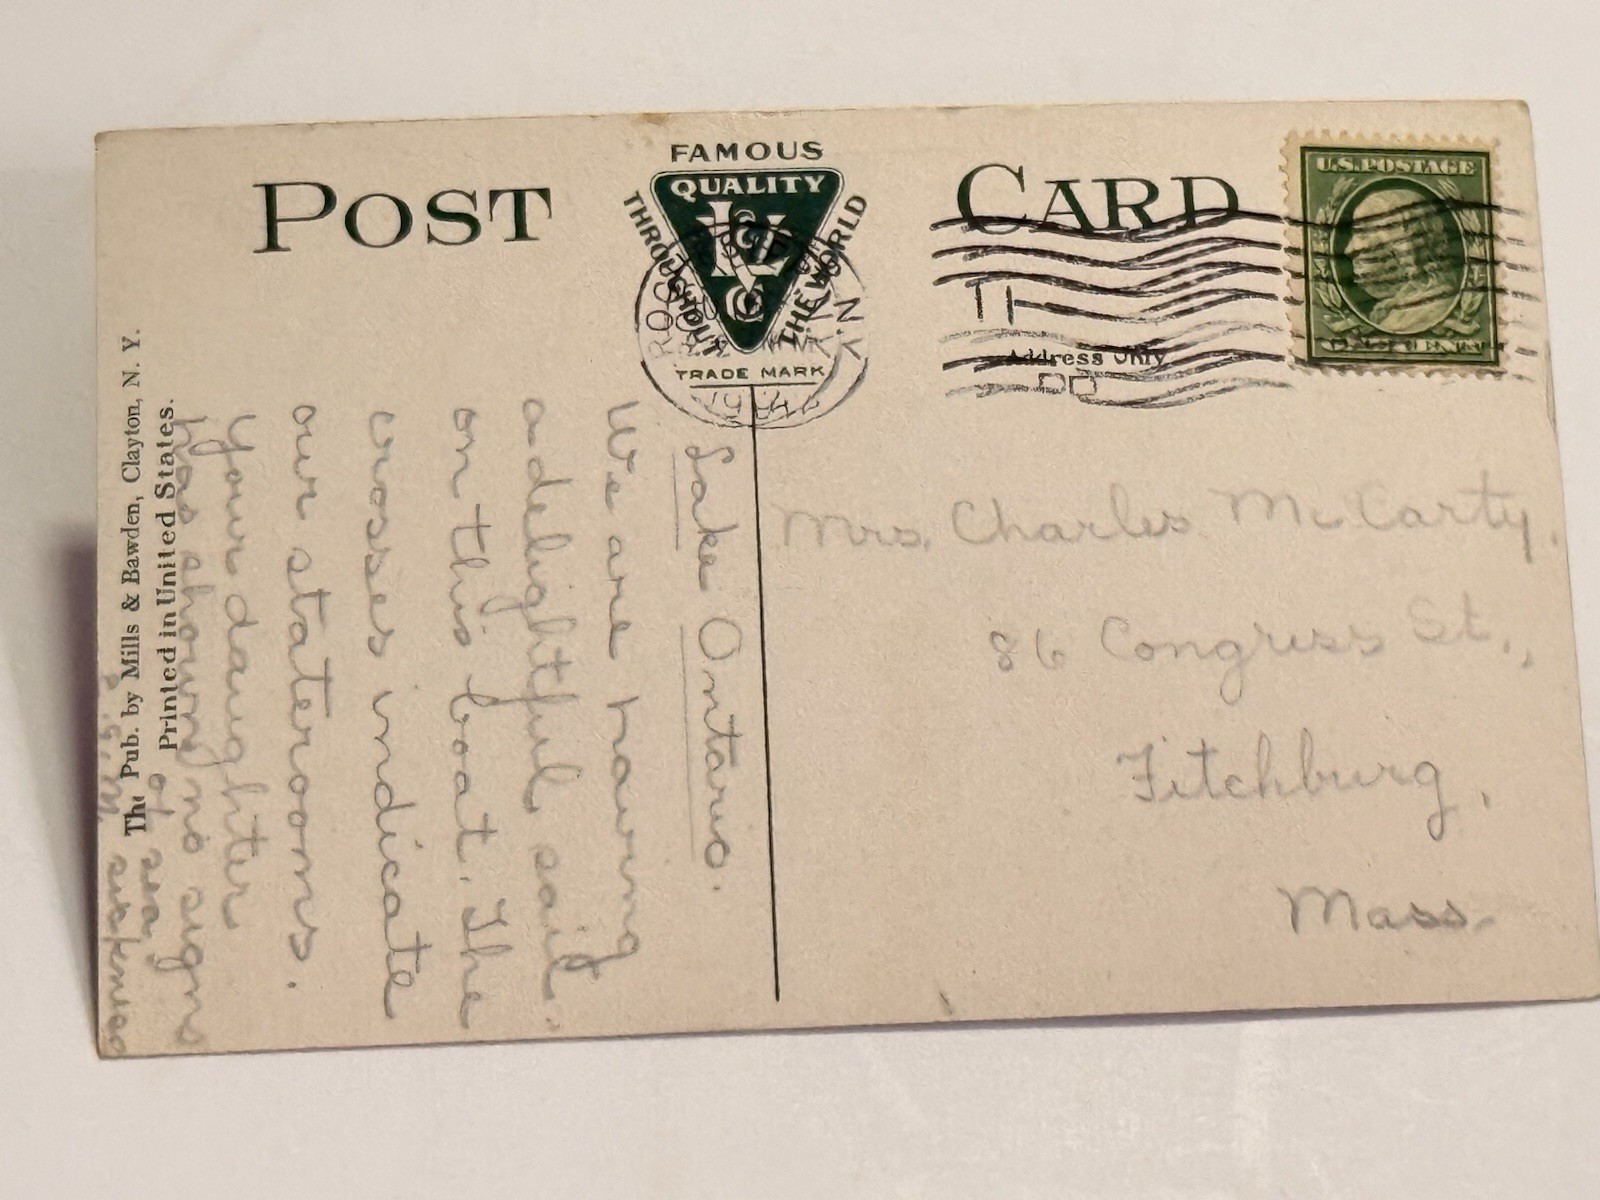 POST CARD
FAMOUS
QUALITY
THROUGHOUT THE WORLD
TRADE MARK
U.S. POSTAGE
Address Only
Lake Ontario.
We are having
a delightful sail
on this boat. The
crosses indicate
our staterooms.
Your daughter
has shown no signs
of sea
sickness
Mrs. Charles McCarty,
86 Congress St.,
Fitchburg,
Mass.
The Pub. by Mills & Bawden, Clayton, N. Y.
Printed in United States.